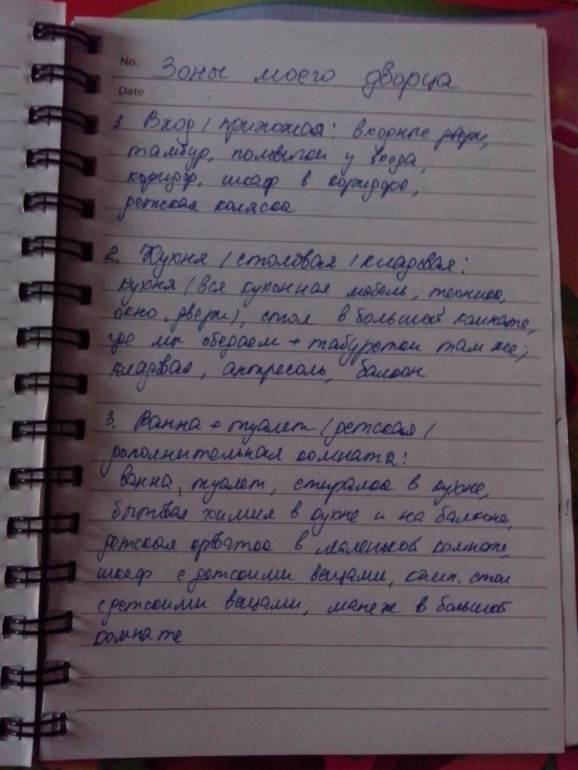 No. Зоны моего дворца
Date
1. Вход / прихожая: входные двери,
тамбур, у входа,
коридор, шкаф в коридоре,
детская коляска
2. Кухня / столовая / кладовая:
кухня (вся кухонная мебель, техника,
окно, двери), стол в большой комнате,
где мы обедаем + табуретки там же;
кладовая, антресоль, балкон
3. Ванна + туалет / детская /
дополнительная комната:
ванна, туалет, стиралка в кухне,
бытовая химия в кухне и на балконе,
детская кроватка в маленькой комнате,
шкаф с детскими вещами, комп. стол
с детскими вещами, манеж в большой
комнате